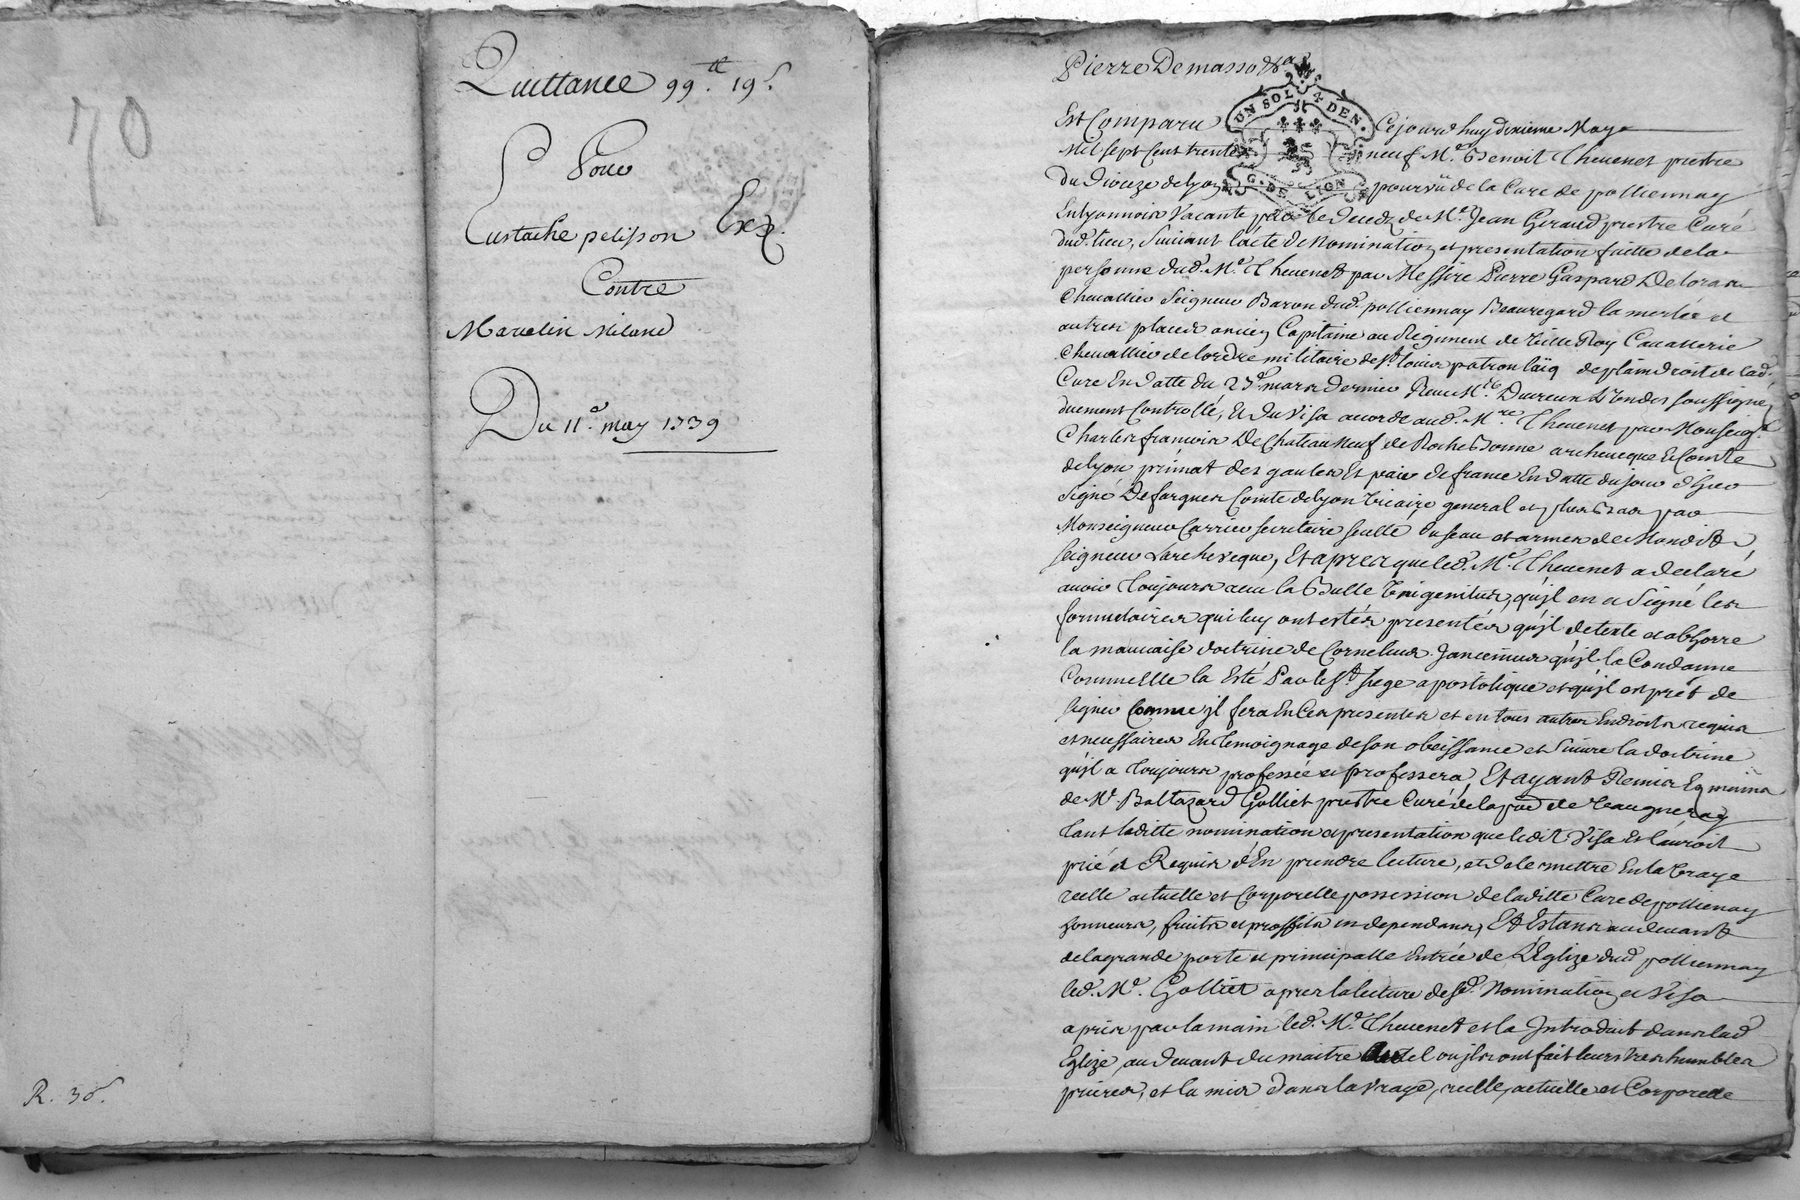 70
Quittance 99.tt 19.s
Pour
Eustache pelisson Exp.
Contre
Mavelin Milane
Du 11.e may 1739
R. 30.s
Pierre Demasso
UN SOL 4 DEN.
G. DE LION
Est Comparu Cejourd huy dixieme May
Mil sept Cent trente neuf M.e Benoit Thevenet prestre
du Dioceze de Lyon pourvû de la Cure de pollienay
En lyonnois Vacante par le deced de M.e Jean Giraud prestre Curé
dud. lieu, Suivant lacte de Nomination et presentation faitte de la
personne dud. M.e Thevenet par Messire Pierre Gaspard De
Chevallier Seigneur Baron dud. pollienay Beauregard la merlée et
autres places ancien Capitaine au Regiment de Roy Cavallerie
Chevallier de lordre militaire de St. louis patron laiq de plain droit de lad.
Cure En datte du 23.e mars dernier Receu M.e soussigné
duement Controllé, Et du Visa accordé aud. M.re Thevenet par Monseig.r
Charles francois De Chateau Neuf de Roche Bonne archeveque et Comte
de Lyon primat des gaules Et pair de france En datte du jour d'hier
Signé Defargues Comte de Lyon Vicaire general et plus Bas par
Monseigneur Carrier secretaire scellé du seau et armes de Mondit
Seigneur Larcheveque, Et apres que led. M.e Thevenet a declaré
avoir toujours la Bulle Unigenitus, qu'il en a Signé les
formulaires qui luy ont estés presentés qu'il deteste et abhorre
la mauvaise doctrine de Cornelius Jancenius qu'il la Condamne
Comme Elle la Esté Par le St. siege apostolique et qu'il est prêt de
signer Comme il fera En Ces presentes et en tous autres Endroits requis
et necessaires En temoignage de son obeissance et Suivre la doctrine
qu'il a toujours professée et professera, Et ayant Remis Es mains
de M.e Baltazard Golliet prestre Curé de la
tant laditte nomination et presentation que ledit Visa Et lauroit
prié et Requis d'En prendre lecture, et de le mettre En la Vraye
reelle actuelle et Corporelle possession de laditte Cure de pollienay
honneurs, fruits et proffits en dependans, Et Estans au devant
de la grande porte et principalle Entrée de L'Eglize dud. pollienay
led. M.e Golliet apres la lecture desd. Nomination et Visa
a pris par la main led. M.e Thevenet et la Introduit dans lad.
Eglize, au devant du maitre autel ou ils ont fait leurs tres humbles
prieres, et la mis dans la Vraye, reelle, actuelle et Corporelle